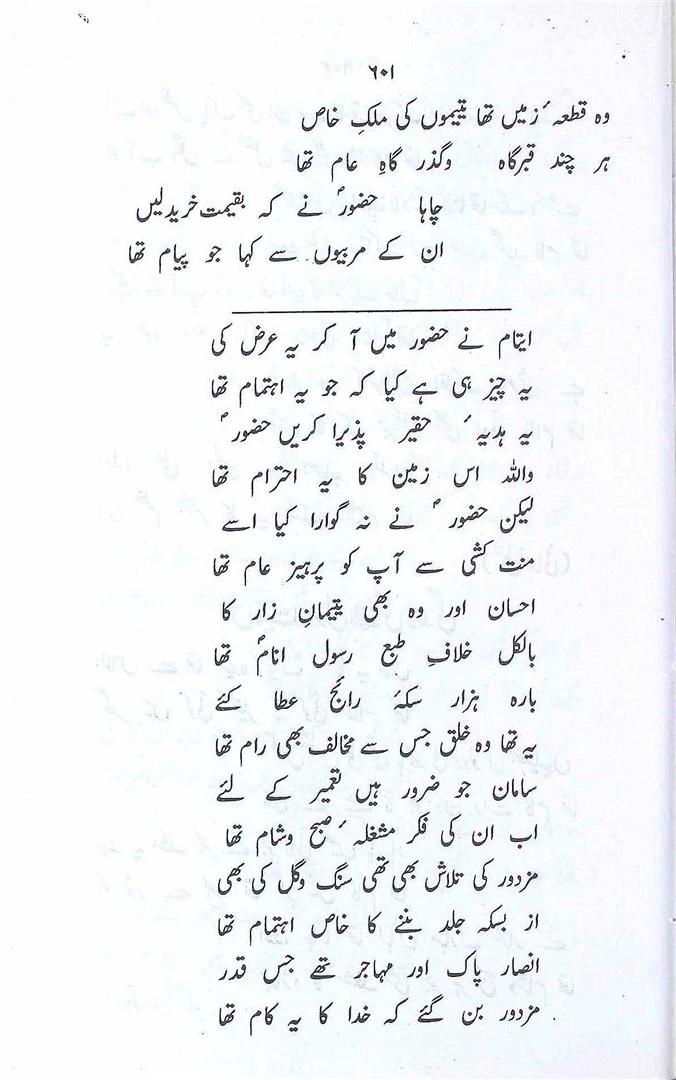 ۶۰۱
وہ قطعہ ٔ زمیں تھا یتیموں کی ملکِ خاص
ہر چند قبرگاہ وگذر گاہِ عام تھا
چاہا حضورؐ نے کہ بقیمت خریدلیں
ان کے مربیوں سے کہا جو پیام تھا
ایتام نے حضور میں آ کر یہ عرض کی
یہ چیز ہی ہے کیا کہ جو یہ اہتمام تھا
یہ ہدیہ ٔ حقیر پذیرا کریں حضور ؐ
واللہ اس زمین کا یہ احترام تھا
لیکن حضور ؐ نے نہ گوارا کیا اسے
منت کشی سے آپ کو پرہیز عام تھا
احسان اور وہ بھی یتیمانِ زار کا
بالکل خلافِ طبع رسول انامؐ تھا
بارہ ہزار سکۂ رائج عطا کئے
یہ تھا وہ خلق جس سے مخالف بھی رام تھا
سامان جو ضرور ہیں تعمیر کے لئے
اب ان کی فکر مشغلہ ٔ صبح وشام تھا
مزدور کی تلاش بھی تھی سنگ وگل کی بھی
از بسکہ جلد بننے کا خاص اہتمام تھا
انصار پاک اور مہاجر تھے جس قدر
مزدور بن گئے کہ خدا کا یہ کام تھا